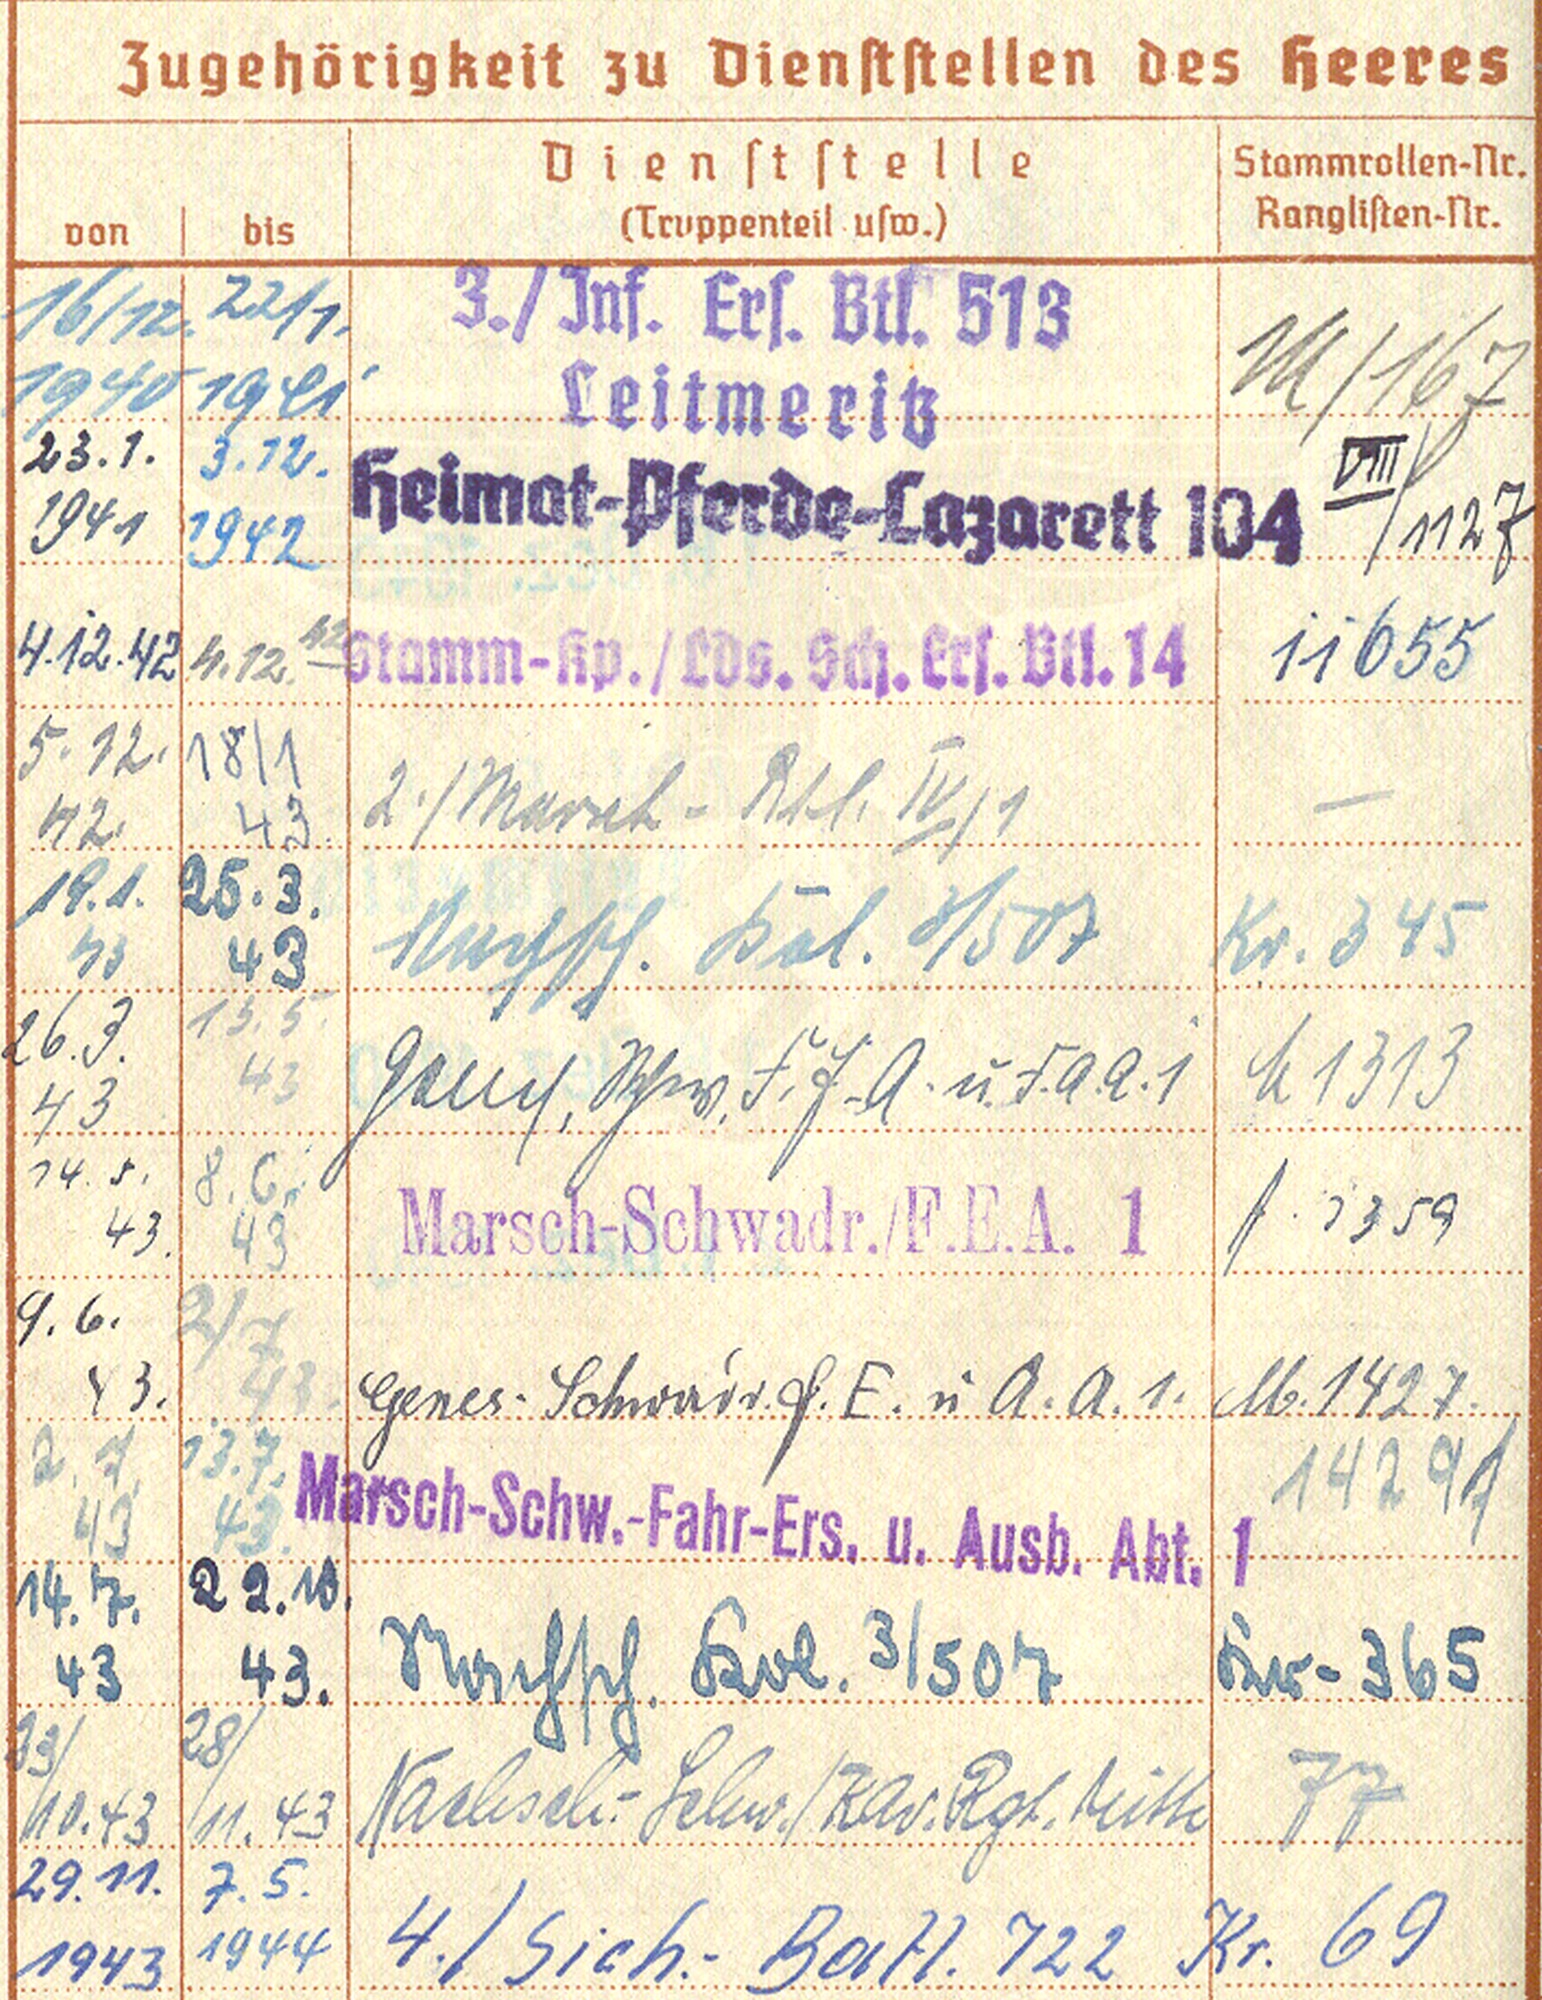 Zugehörigkeit zu Dienststellen des Heeres
von bis Dienststelle (Truppenteil usw.) Stammrollen-Nr. Ranglisten-Nr.
16/12. 1940 22/1. 1941 3./Inf. Ers. Btl. 513 M/167
Leitmeritz
23.1. 1941 3.12. 1942 Heimat-Pferde-Lazarett 104 VIII/1127
4.12.42 4.12. 42 Stamm-Kp./Lds. Sch. Ers. Btl. 14 11655
5.12. 42. 18/1 43. 2./Marsch-Btl. IV/1 —
19.1. 43 25.3. 43 Nachsch. Kol. 3/507 Kr. 345
26.3. 43 13.5. 43 Schw. F. A. u. 1 1313
14.5. 43. 8.6. 43 Marsch-Schwadr./F.E.A. 1 1359
9.6. 43. 2/7 43. Genes.-Schwadr. F. E. u A. A. 1. M. 1427.
2.7. 43 13.7. 43. Marsch-Schw.-Fahr-Ers. u. Ausb. Abt. 1 1429
14.7. 43 22.10. 43. Nachsch. Kol. 3/507 Kr- 365
23/10.43 28/11.43 Nachsch.-Schw./Kav.Rgt. Mitte 77
29.11. 1943 7.5. 1944 4./Sich.-Batl. 722 Kr. 69